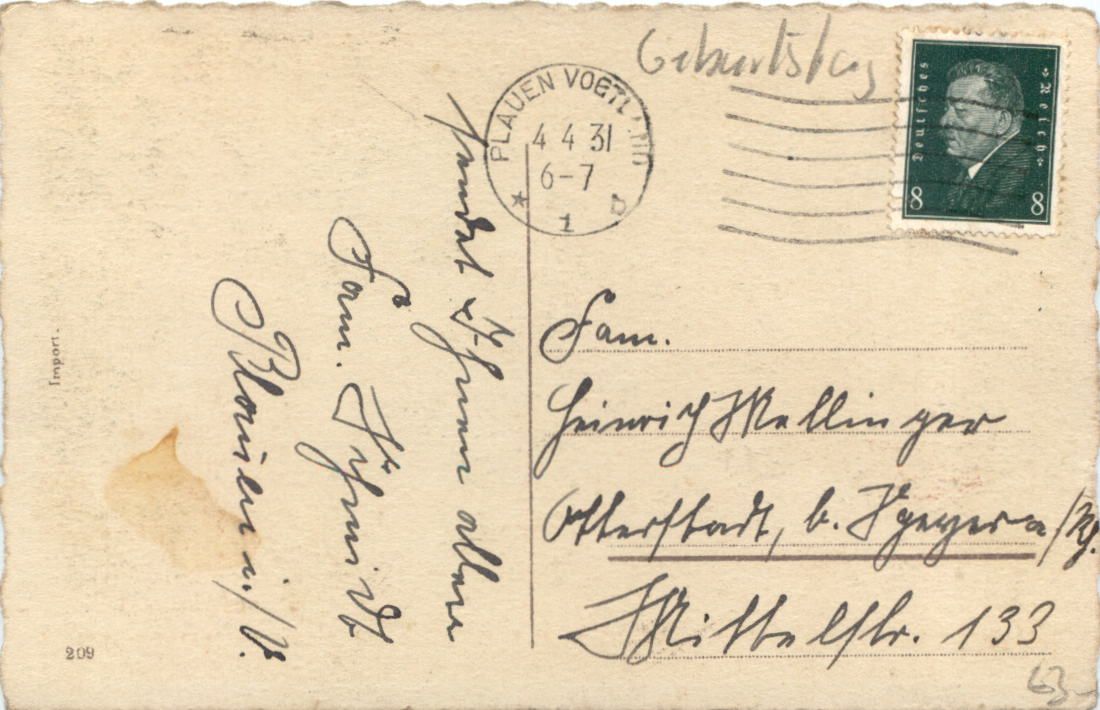 Geburtstag
PLAUEN VOGTLAND
4 4 31
6-7
* 1 b
Deutsches Reich
8 8
sendet Ihnen allen
Fam. Schmidt
Plauen i./V.
Fam.
Heinrich Mellinger
Otterstadt, b. Speyer a/Rh.
Mittelstr. 133
Import.
209
63-